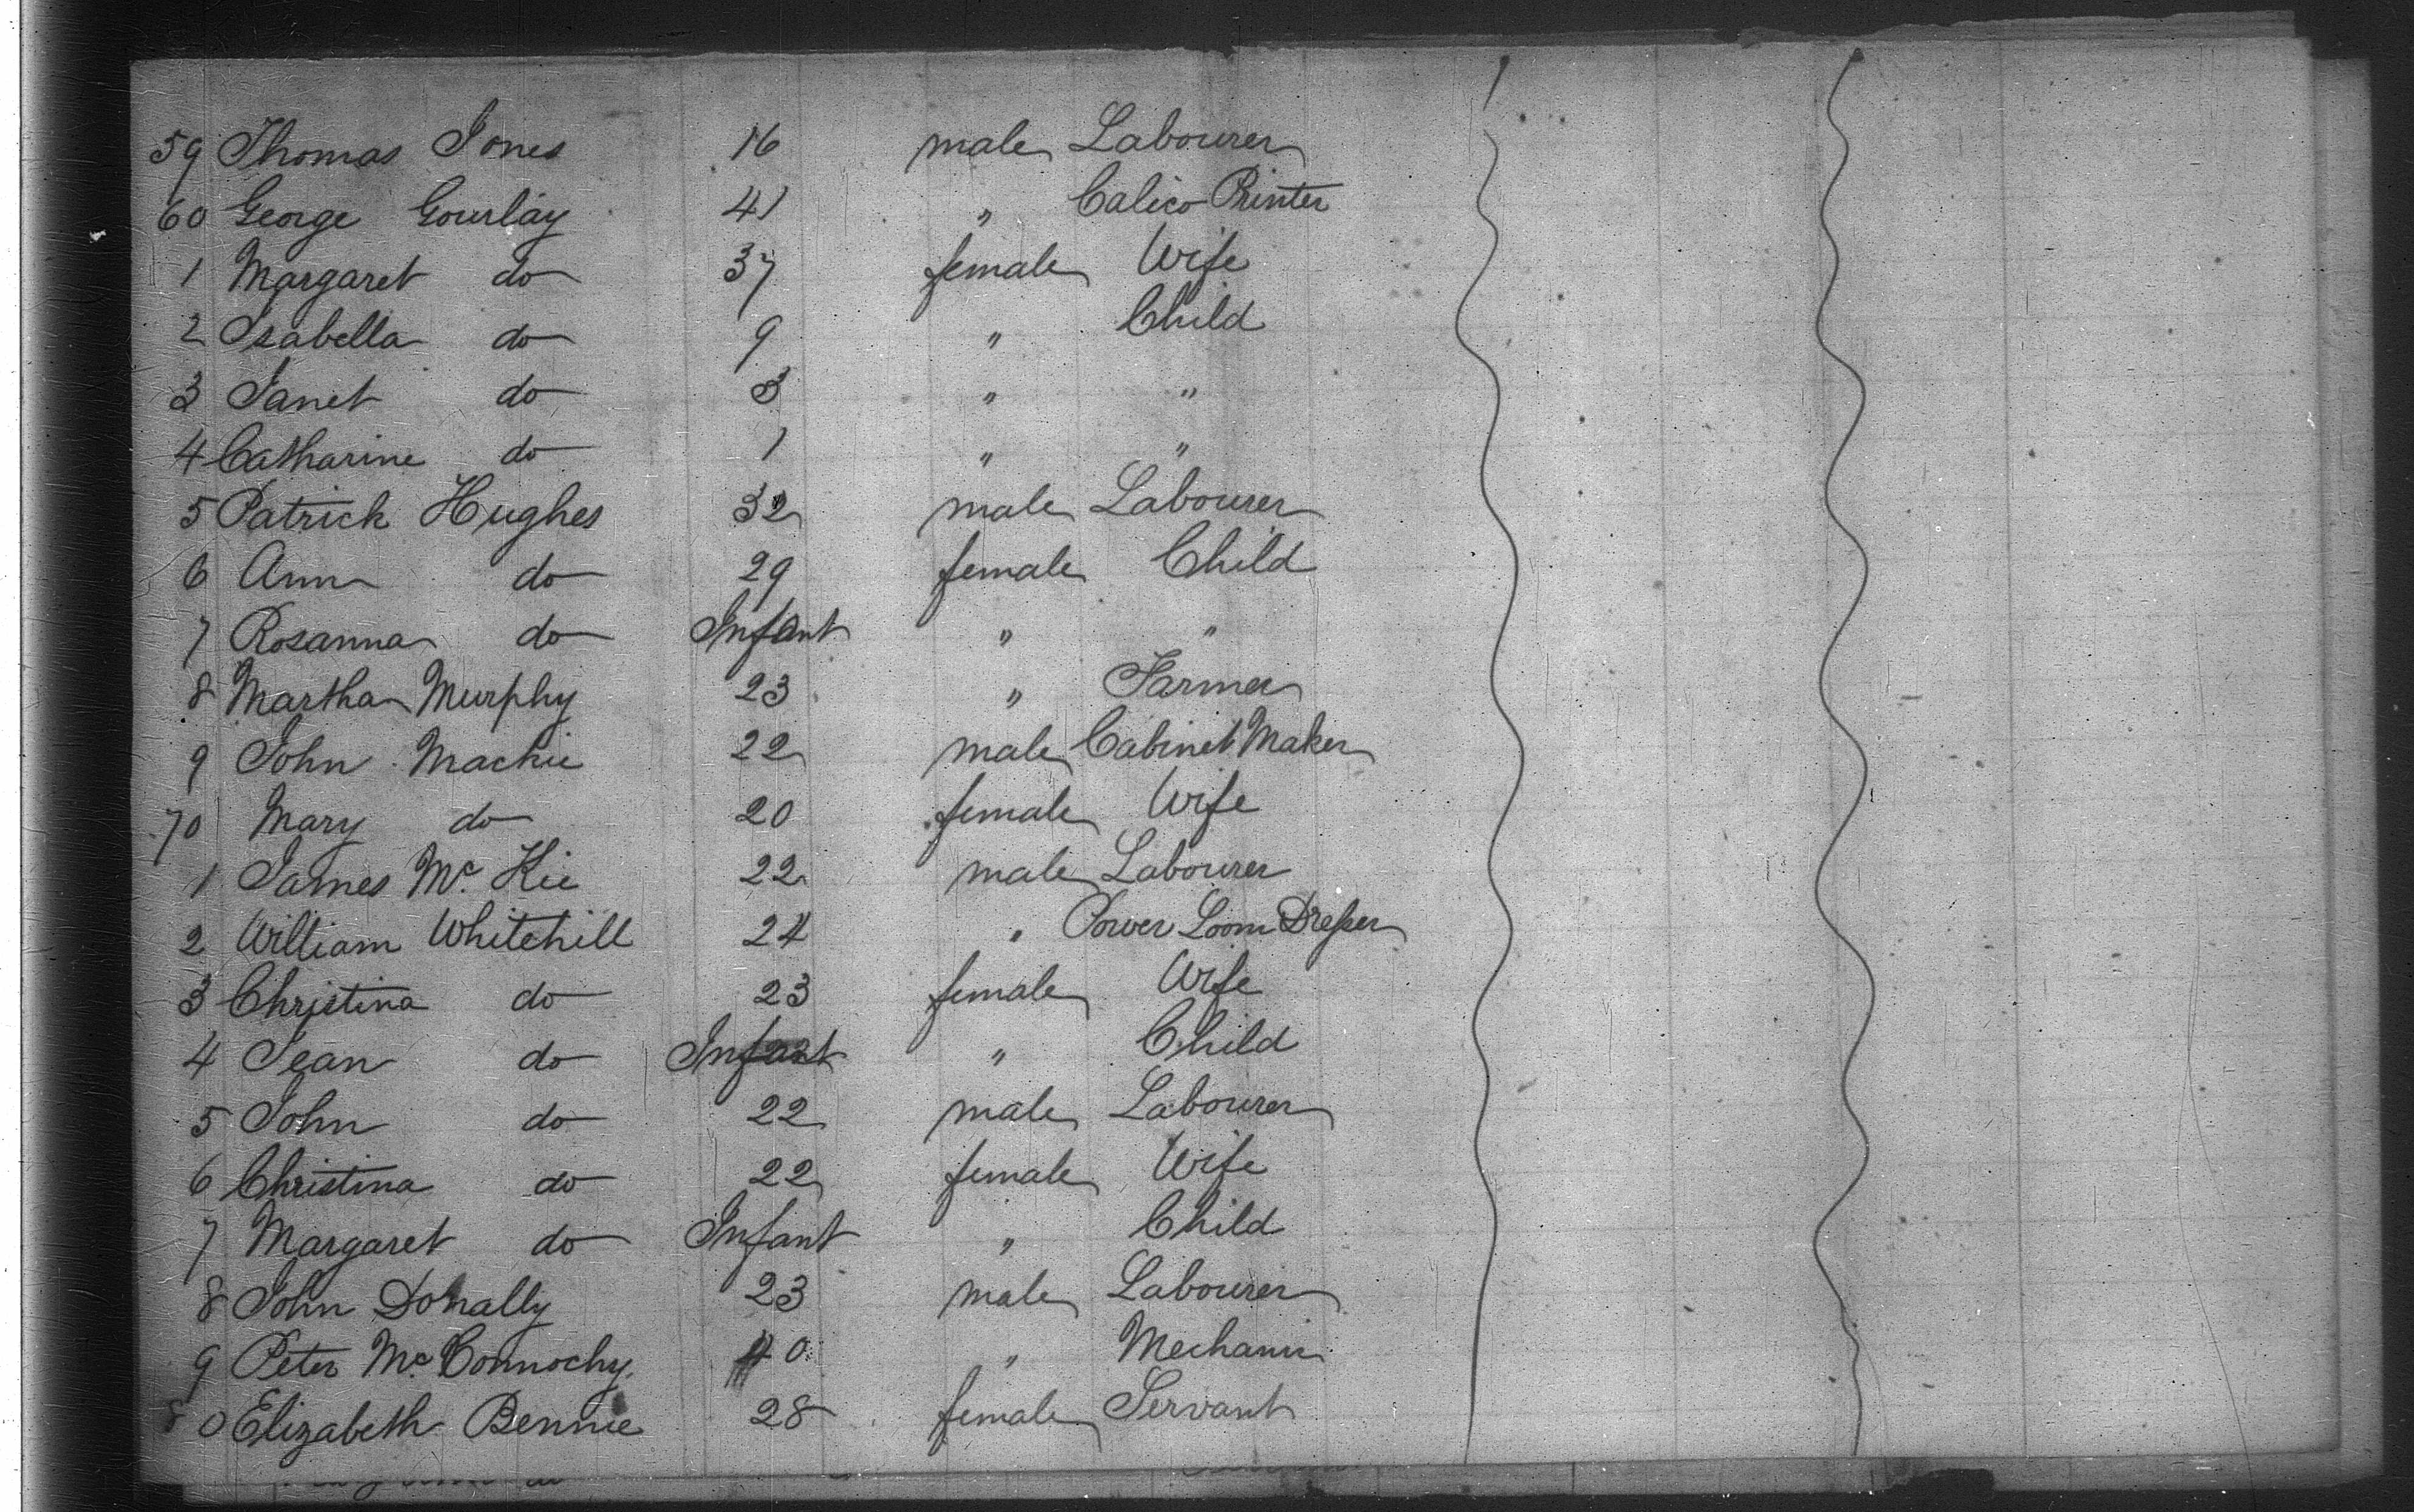 59 Thomas Jones 16 male Labourer
60 George Gourlay 41 " Calico Printer
1 Margaret do 37 female Wife
2 Isabella do 9 " Child
3 Janet do 3 " "
4 Catharine do 1 " "
5 Patrick Hughes 32 male Labourer
6 Ann do 29 female Child
7 Rosanna do Infant " "
8 Martha Murphy 23 " Farmer
9 John Mackie 22 male Cabinet Maker
70 Mary do 20 female Wife
1 James Mc. Kie 22 male Labourer
2 William Whitehill 24 " Power Loom Dresser
3 Christina do 23 female Wife
4 Jean do Infant " Child
5 John do 22 male Labourer
6 Christina do 22 female Wife
7 Margaret do Infant " Child
8 John Donally 23 male Labourer
9 Peter Mc. Connochy 40 " Mechanic
80 Elizabeth Bennie 28 female Servant